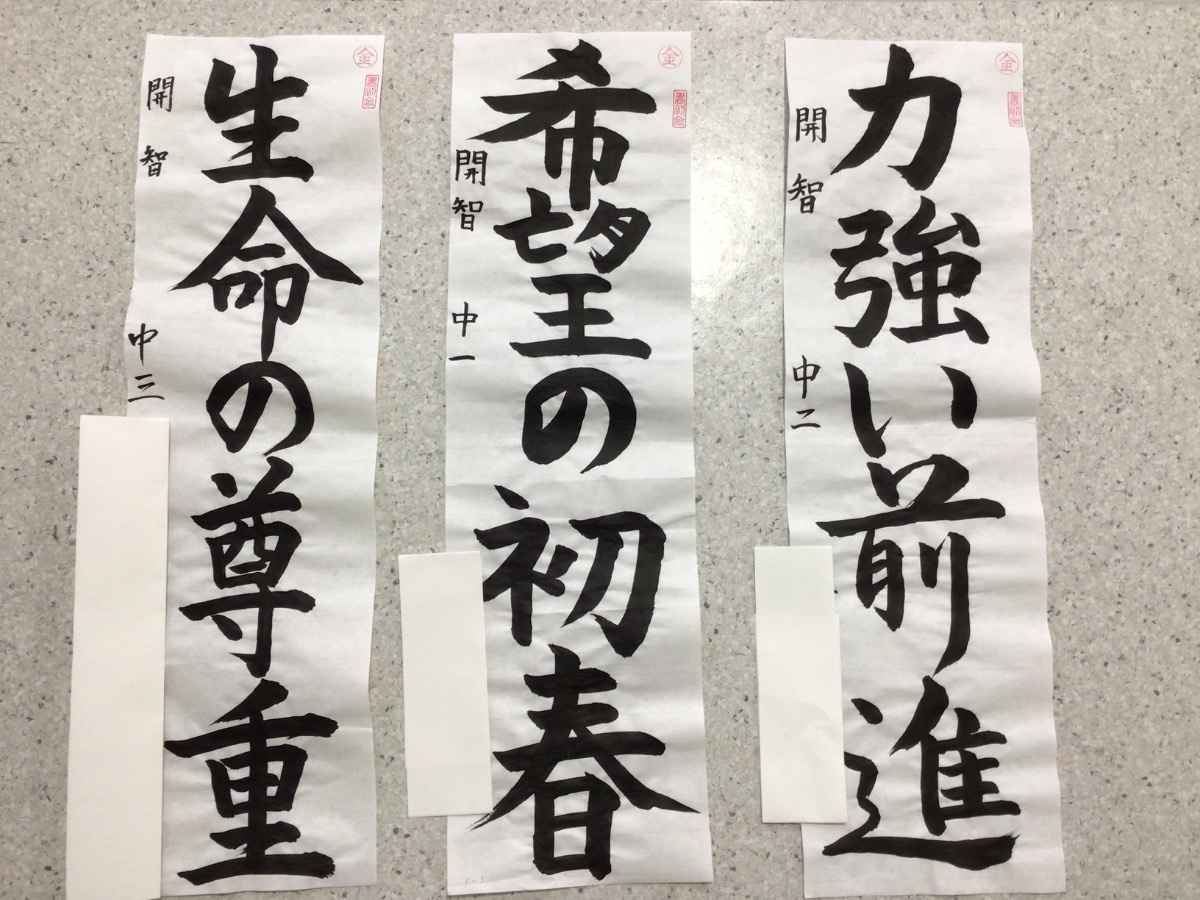 力強い前進
開智
中二
金
希望の初春
開智
中一
金
生命の尊重
開智
中三
金